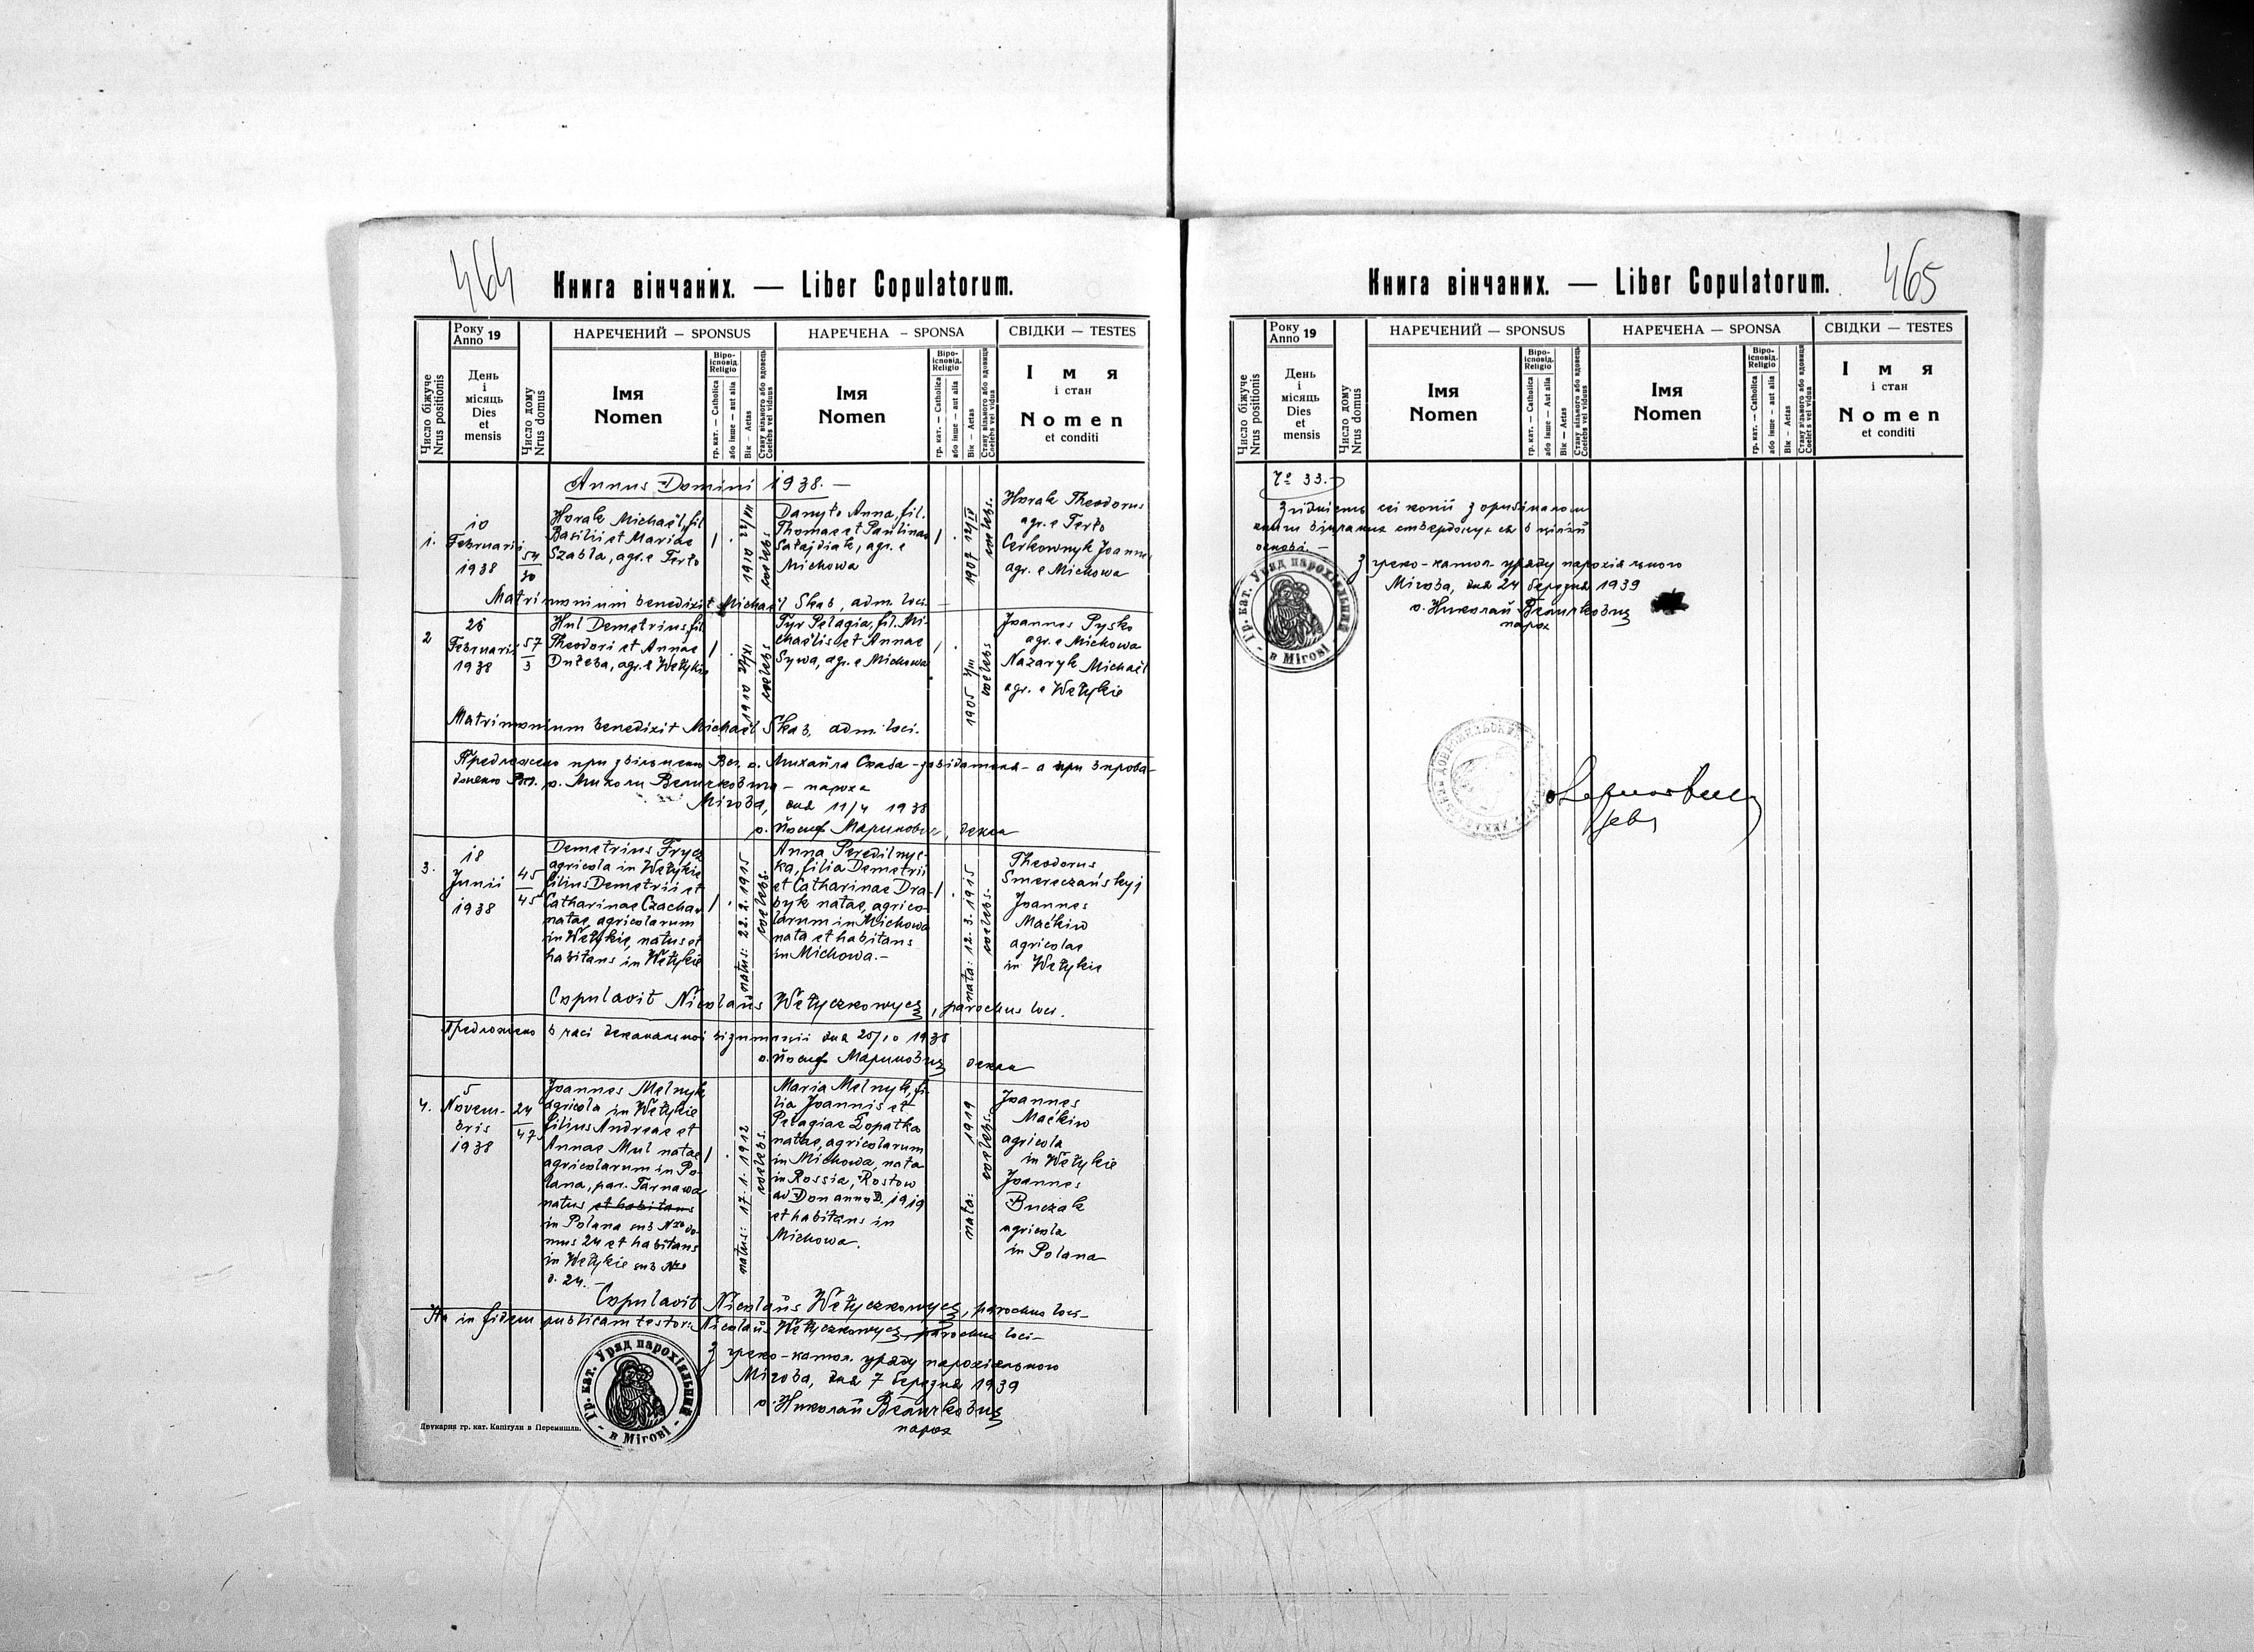 464
Книга вінчаних. — Liber Copulatorum.
Число біжуче
Nrus positionis
Року
Anno 19
День
і
місяць
Dies
et
mensis
Число дому
Nrus domus
НАРЕЧЕНИЙ — SPONSUS
Імя
Nomen
Віро-
ісповід.
Religio
гр. кат. — Catholica
або інше — aut alia
Вік — Aetas
Стану вільного або вдовець
Coelebs vel viduus
НАРЕЧЕНА – SPONSA
Імя
Nomen
Віро-
ісповід.
Religio
гр. кат. — Catholica
або інше — aut alia
Вік — Aetas
Стану вільного або вдовиця
Coelebs vel vidua
СВІДКИ — TESTES
Імя
і стан
Nomen
et conditi
Annus Domini 1938. —
1.
10
Februarii
1938
54
30
Horak Michaël, fil
Basilii et Mariae
Szabla, agr. e Terło
1910 22/VII
coelebs
Danyło Anna, fil.
Thomae et Paulinae
Satajdiak, agr. e
Michowa
1907 12/IV
coelebs.
Horak Theodorus
agr. e Terło
Cerkownyk Joannes
agr. e Michowa
Matrimonium benedixit Michaël Skab, adm. loci.
2
26
Februarii
1938
57
3
Hul Demetrius, fil
Theodori et Annae
Dużeba, agr. e Wełykie
1910 24/XI
coelebs
Tyr Pelagia, fil. Mi-
chaëlis et Annae
Sywa, agr. e Michowa
1905 3/III
coelebs
Joannes Pysko
agr. e Michowa
Nazaryk Michaël
agr. e Wełykie
Matrimonium benedixit Michaël Skab, adm. loci.
Предложено при звільненю Вп. о. Михайла Скаба – завідателя – а при впрова-
дженю Вп. о. Миколи Величковича – пароха
Мігова, дня 11/4 1938
о. Йосиф Маринович, декан
3.
18
Junii
1938
45
45
Demetrius Frycz
agricola in Wełykie
filius Demetrii et
Catharinae Czachar
natae, agricolarum
in Wełykie, natus et
habitans in Wełykie
natus: 22. 2. 1915
coelebs.
Anna Peredilnyc-
ka, filia Demetrii
et Catharinae Dra-
byk natae, agrico-
larum in Michowa
nata et habitans
in Michowa.–
nata: 12. 3. 1915
coelebs.
Theodorus
Smereczańskyj
Joannes
Maćkiw
agricolae
in Wełykie
Copulavit Nicolaus Wełyczkowycz, parochus loci.
Предложено в часі деканальної візитації дня 25/10 1938
о. Йосиф Маринович декан
4.
5
Novem-
bris
1938
24
47
Joannes Melnyk,
agricola in Wełykie
filius Andreae et
Annae Mul natae
agricolarum in Po-
lana, par. Tarnawa
natus et habitans
in Polana sub Nro do-
mus 24 et habitans
in Wełykie sub Nro
d. 24. –
natus: 17. 1. 1912
coelebs.
Maria Melnyk, fi-
lia Joannis et
Pelagiae Łopatka
natae, agricolarum
in Michowa, nata
in Rossia, Rostow
ad Don anno D. 1919
et habitans in
Michowa.
nata: 1919
coelebs.
Joannes
Maćkiw
agricola
in Wełykie
Joannes
Buczak
agricola
in Polana
Copulavit Nicolaus Wełyczkowycz, parochus loci–
Ita in fidem publicam testor: Nicolaus Wełyczkowycz parochus loci–
З греко-катол. уряду парохіяльного
Мігова, дня 7 березня 1939
о. Николай Величкович
парох
Гр. кат. Уряд парохіяльний
в Мігові
Друкарня гр. кат. Капітули в Перемишлі.
465
Книга вінчаних. — Liber Copulatorum.
Число біжуче
Nrus positionis
Року
Anno 19
День
і
місяць
Dies
et
mensis
Число дому
Nrus domus
НАРЕЧЕНИЙ — SPONSUS
Імя
Nomen
Віро-
ісповід.
Religio
гр. кат. — Catholica
або інше — Aut alia
Вік — Aetas
Стану вільного або вдовець
Coelebs vel viduus
НАРЕЧЕНА — SPONSA
Імя
Nomen
Віро-
ісповід.
Religio
гр. кат. — Catholica
або інше — aut alia
Вік — Aetas
Стану вільного або вдовиця
Coelebs vel vidua
СВІДКИ — TESTES
Імя
і стан
Nomen
et conditi
33.
Згідність сеї копії з оригіналом
книги вінчаних стверджує ся в цілій
основі. –
З греко-катол. уряду парохіяльного
Мігова, дня 24 березня 1939
о. Николай Величкович
парох
Гр. кат. Уряд парохіяльний
в Мігові